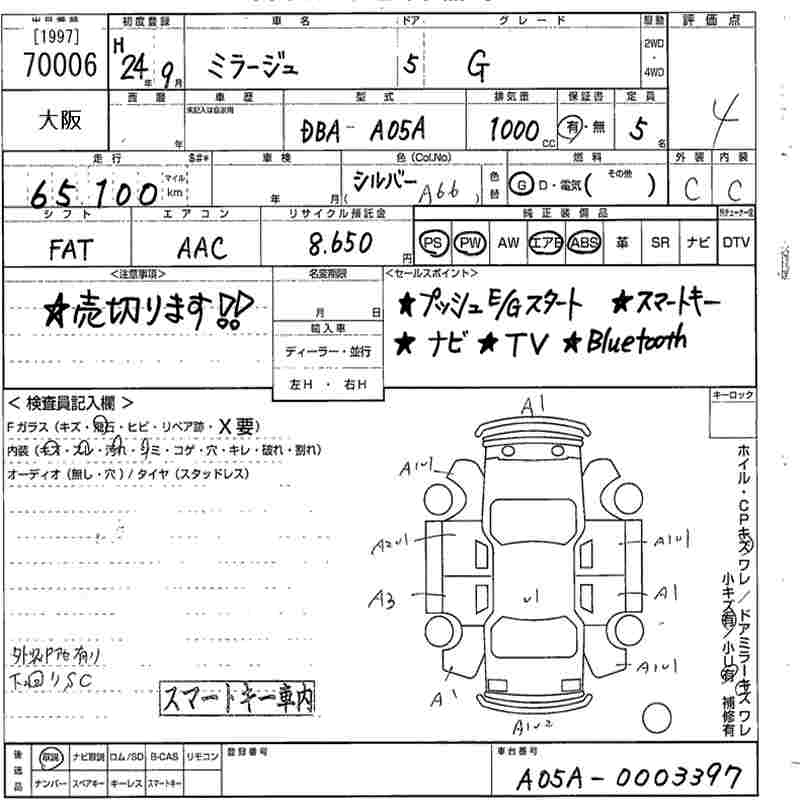 [1997]
70006
初度登録 車名 ドア グレード 駆動 評価点
H 24年 9月 ミラージュ 5 G 2WD・4WD 4
大阪
西暦 車歴 型式 排気量 保証書 定員
年 未記入は自家用 DBA-A05A 1000cc 有・無 5名
走行 車検 色(Col.No) 燃料 外装 内装
65,100 マイル km 年 月 シルバー (A66) 色替 G D・電気( その他 ) C C
シフト エアコン リサイクル預託金 純正装備品
FAT AAC 8.650円 PS PW AW エアB ABS 革 SR ナビ DTV
<注意事項> 名変期限 <セールスポイント>
★売切ります!! 月 日 ★プッシュE/Gスタート ★スマートキー
輸入車 ★ナビ ★TV ★Bluetooth
ディーラー・並行
左H・右H
<検査員記入欄> キーロック
Fガラス(キズ・飛石・ヒビ・リペア跡・X要)
内装(キズ・スレ・汚れ・シミ・コゲ・穴・キレ・破れ・割れ)
オーディオ(無し・穴)/タイヤ(スタッドレス)
A1
A1U1
A2U1 A1U1
A3 U1 A1
A1 A1U1
A1U2
ホイル・CPキズワレ/ドアミラーキズワレ
小キズ有/小U有 補修有
下回りSC
スマートキー車内
後送品 取説 ナビ取説 ロム/SD B-CAS リモコン 登録番号 車台番号
ナンバー スペアキー キーレス スマートキー A05A-0003397